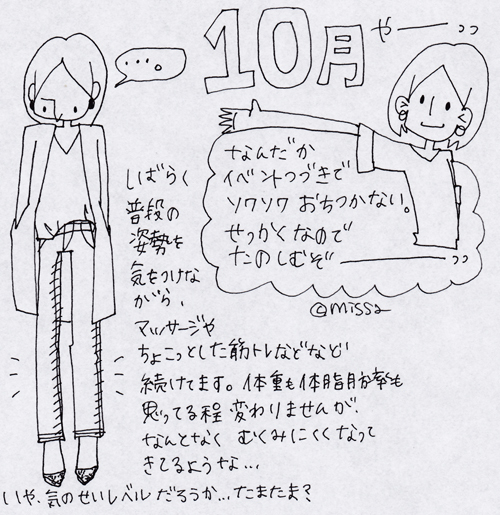 …。
10月やーッッ
なんだか
イベントつづきで
ソワソワ おちつかない。
せっかくなので
たのしむぞーッッ
@missa
しばらく
普段の
姿勢を
気をつけな
がら、
マッサージや
ちょこっとした筋トレなどなど
続けてます。体重も体脂肪率も
思ってる程 変わりませんが、
なんとなく むくみにくくなって
きてるような…
いや、気のせいレベルだろうか…たまたま?